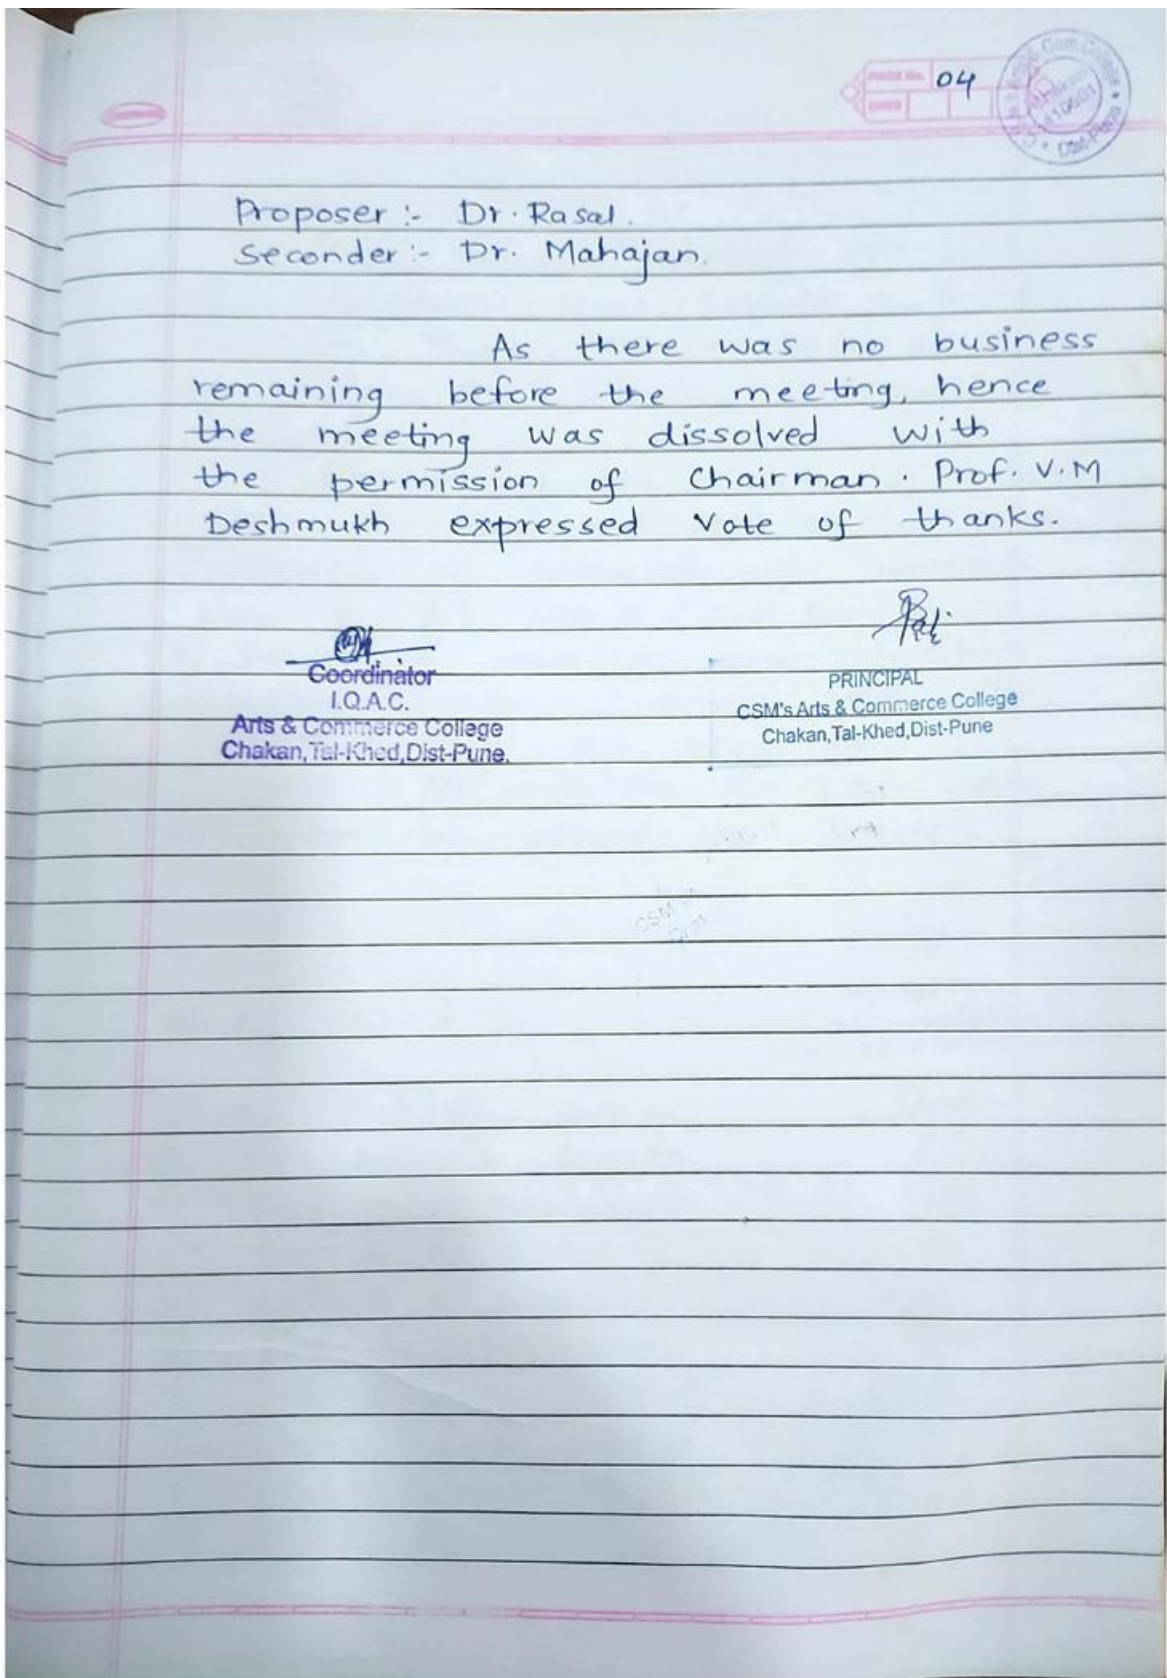 PAGE No. 04
DATE
Proposer :- Dr. Rasal.
Seconder :- Dr. Mahajan.
As there was no business
remaining before the meeting, hence
the meeting was dissolved with
the permission of Chairman. Prof. V.M
Deshmukh expressed Vote of thanks.
Coordinator
I.Q.A.C.
Arts & Commerce College
Chakan, Tal-Khed, Dist-Pune.
PRINCIPAL
CSM's Arts & Commerce College
Chakan, Tal-Khed, Dist-Pune